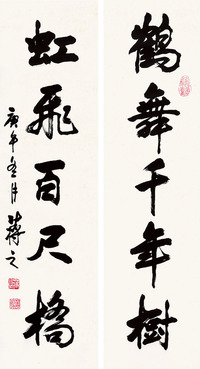 鶴舞千年樹
虹飛百尺橋
庚午冬月 蔣之